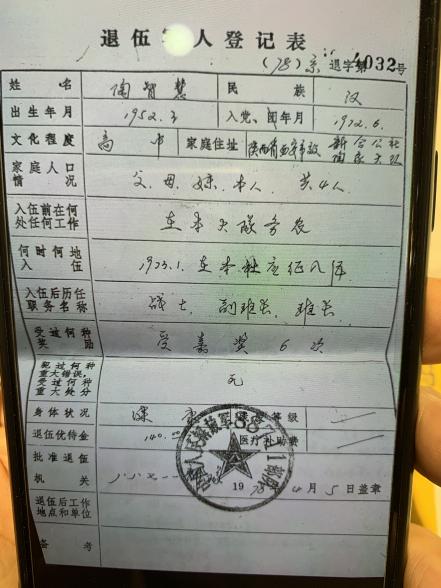 退伍军人登记表
(78)京 退字第4032号
姓名 陶智慧 民族 汉
出生年月 1952.3 入党、团年月 1972.6.
文化程度 高中 家庭住址 陕西省西安市 新合公社
家庭人口情况 父、母、妹、本人、共4人
入伍前在何处任何工作 在本大队务农
何时何地入伍 1973.1. 在本社应征入伍
入伍后历任职务名称 战士、副班长、班长
受过何种奖励 受嘉奖6次
犯过何种重大错误,受过何种重大处分 无
身体状况 健康 等级
退伍优待金 140. 医疗补助费
批准退伍机关
1978年4月5日盖章
退伍后工作地点和单位
备考